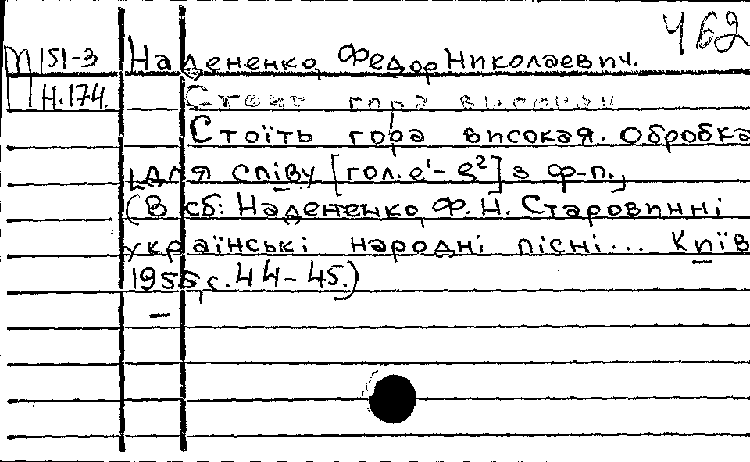 462
П 151-3 Надененко, Федор Николаевич.
Н.174.
Стоїть гора високая. Обробка
для співу [гол. e¹- g²] з ф-п.,
(В сб: Надененко, Ф. Н. Старовинні
українські народні пісні... Київ
1955, с. 44-45.)